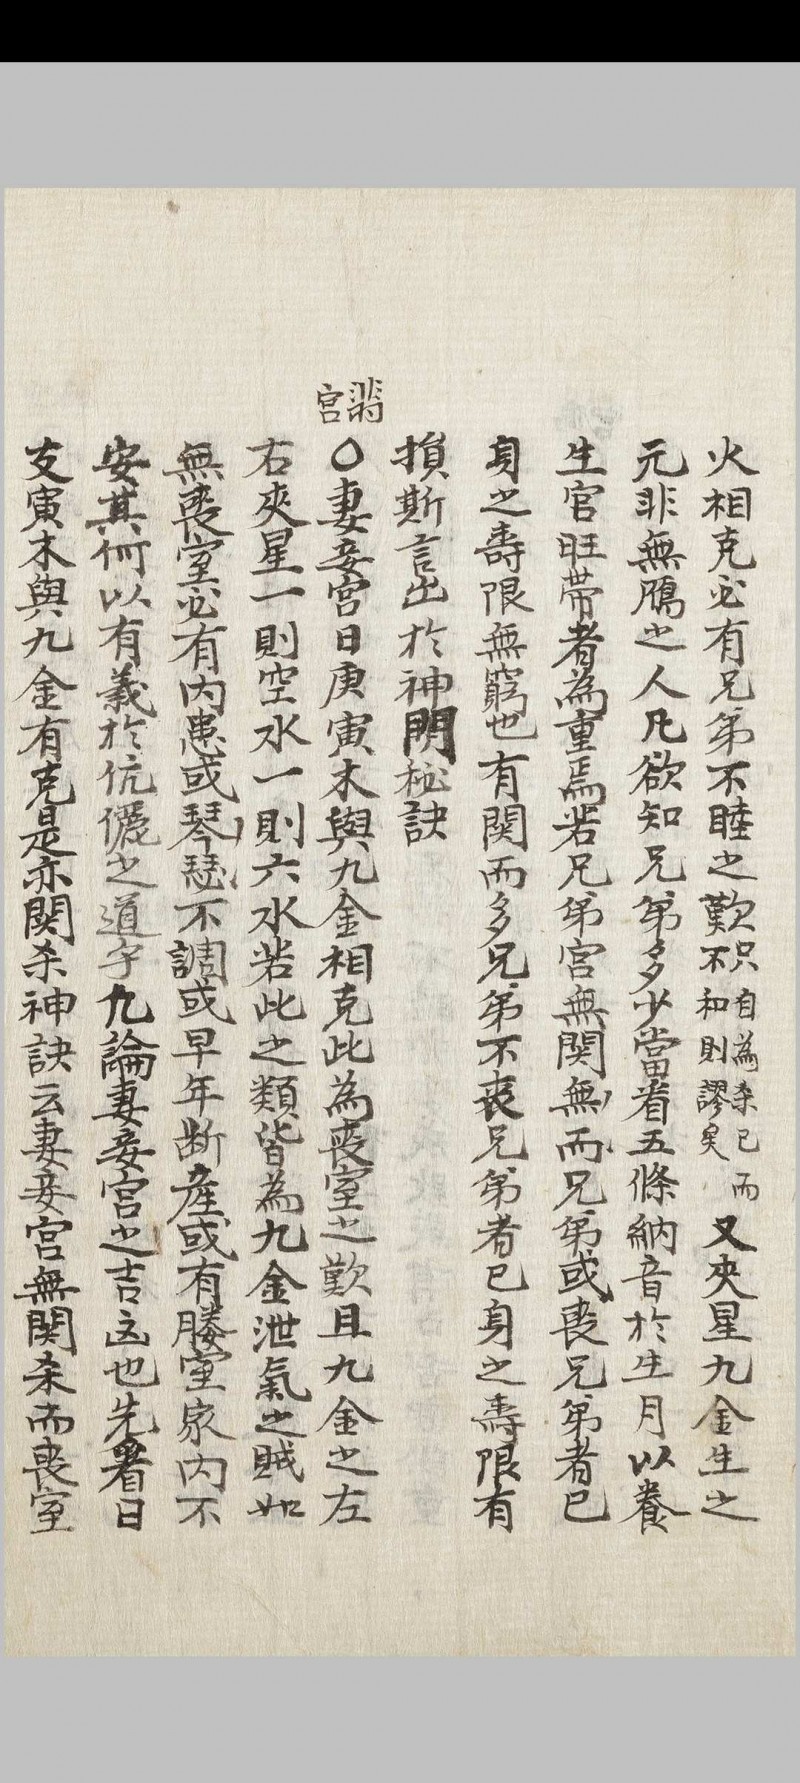 火相克必有兄弟不睦之歎只自為杀已而不和則謬矣又夾星九金生之
元非無鴈之人凡欲知兄弟多少當看五條納音於生月以養
生官旺帶者為重焉若兄弟宮無関無而兄弟或喪兄弟者已
身之壽限無窮也有関而多兄弟不喪兄弟者已身之壽限有
損斯言出於神門秘訣
宮
〇妻妾宮日庚寅木與九金相克此為喪室之歎且九金之左
右夾星一則空水一則六水若此之類皆為九金泄氣之賊如
無喪室必有内患或琴瑟不調或早年断產或有媵室家内不
安其何以有義於伉儷之道乎凡論妻妾宮之吉凶也先看日
支寅木與九金有克是亦関杀神訣云妻妾宮無関杀而喪室